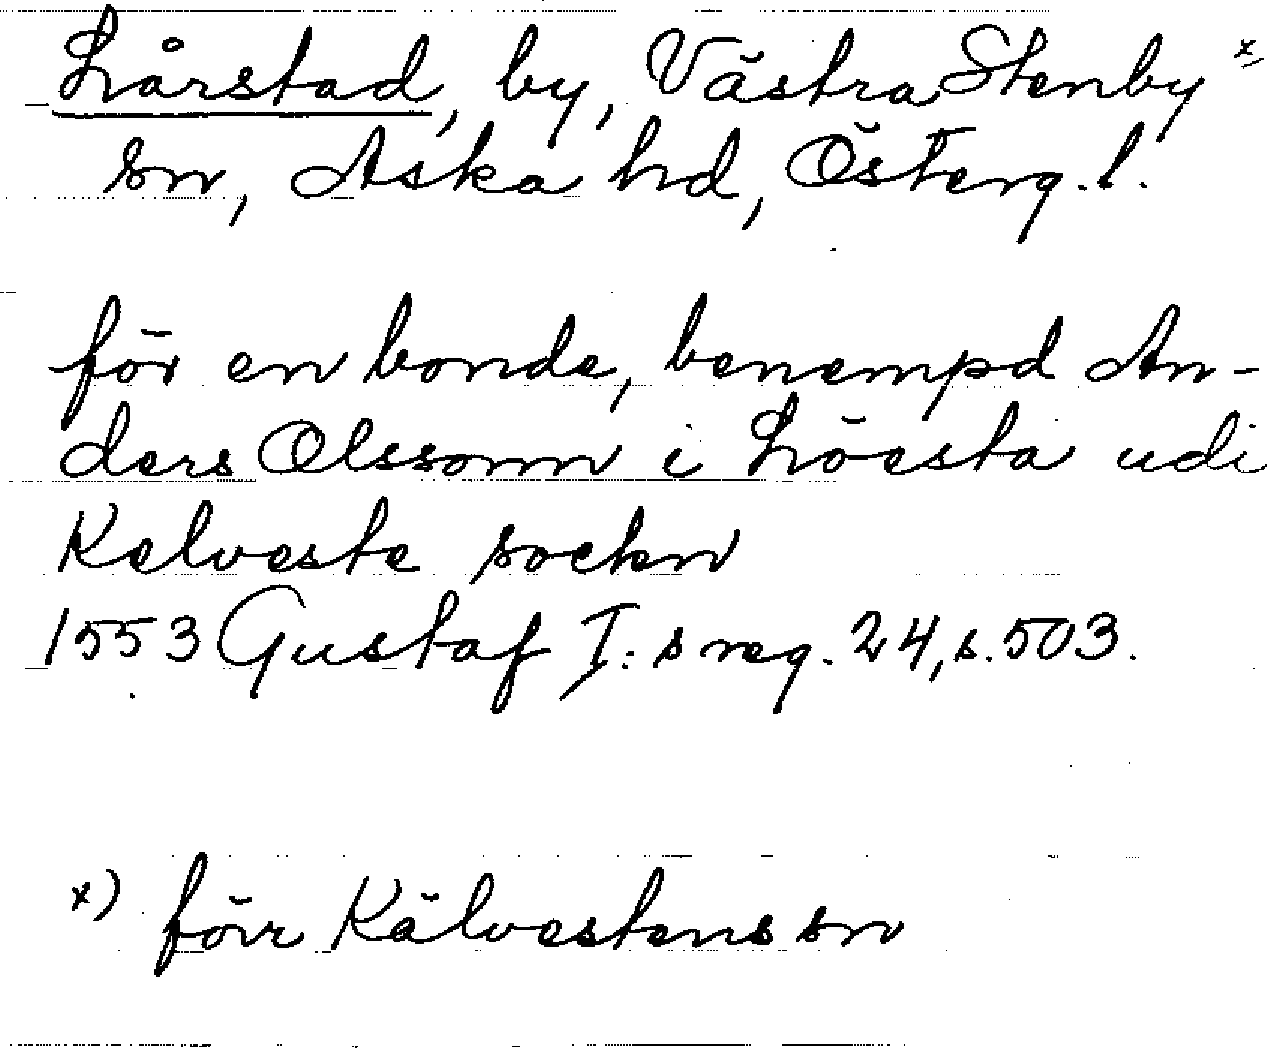 Lårstad, by, Västra Stenby x
sn, Aska hd, Österg.l.
för en bonde, benempd An-
ders Olssonn i Löesta udi
Kelveste sockn
1553 Gustaf I:s reg. 24, s. 503.
x) förr Kälvestens sn